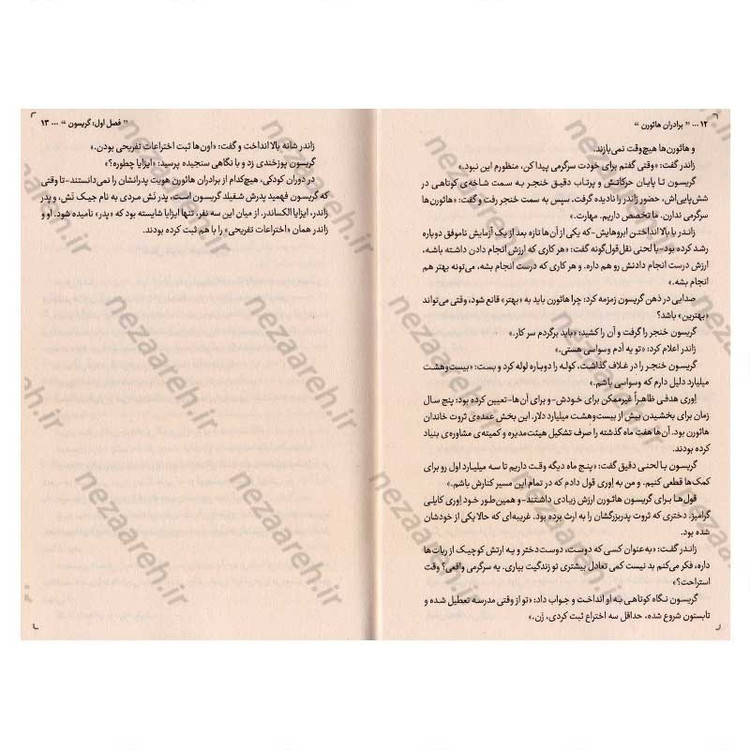 ۱۲ ... " برادران هاثورن "
و هاثورن‌ها هیچ‌وقت نمی‌بازند.
زاندر گفت: «وقتی گفتم برای خودت سرگرمی پیدا کن، منظورم این نبود.»
گریسون تا پایان حرکاتش و پرتاب دقیق خنجر به سمت شاخه‌ی کوتاهی در
شش‌پایی‌اش، حضور زاندر را نادیده گرفت. سپس به سمت خنجر رفت و گفت: «هاثورن‌ها
سرگرمی ندارن. ما تخصص داریم. مهارت.»
زاندر با بالا انداختن ابروهایش-که یکی از آن‌ها تازه بعد از یک آزمایش ناموفق دوباره
رشد کرده بود-با لحنی نقل‌قول‌گونه گفت: «هر کاری که ارزش انجام دادن داشته باشه،
ارزش درست انجام دادنش رو هم داره. و هر کاری که درست انجام بشه، می‌تونه بهتر هم
انجام بشه.»
صدایی در ذهن گریسون زمزمه کرد: چرا هاثورن باید به «بهتر» قانع شود، وقتی می‌تواند
«بهترین» باشد؟
گریسون خنجر را گرفت و آن را کشید: «باید برگردم سر کار.»
زاندر اعلام کرد: «تو یه آدم وسواسی هستی.»
گریسون خنجر را در غلاف گذاشت، کوله را دوباره لوله کرد و بست: «بیست‌وهشت
میلیارد دلیل دارم که وسواسی باشم.»
اِوری هدفی ظاهراً غیرممکن برای خودش-و برای آن‌ها-تعیین کرده بود: پنج سال
زمان برای بخشیدن بیش از بیست‌وهشت میلیارد دلار. این بخش عمده‌ی ثروت خاندان
هاثورن بود. آن‌ها هفت ماه گذشته را صرف تشکیل هیئت‌مدیره و کمیته‌ی مشاوره‌ی بنیاد
کرده بودند.
گریسون با لحنی دقیق گفت: «پنج ماه دیگه وقت داریم تا سه میلیارد اول رو برای
کمک‌ها قطعی کنیم. و من به اِوری قول دادم که در تمام این مسیر کنارش باشم.»
قول‌ها برای گریسون هاثورن ارزش زیادی داشتند-و همین‌طور خود اِوری کایلی
گرامبز. دختری که ثروت پدربزرگشان را به ارث برده بود. غریبه‌ای که حالا یکی از خودشان
شده بود.
زاندر گفت: «به‌عنوان کسی که دوست، دوست‌دختر و یه ارتش کوچیک از ربات‌ها
داره، فکر می‌کنم بد نیست کمی تعادل بیشتری تو زندگیت بیاری. یه سرگرمی واقعی؟ وقت
استراحت؟»
گریسون نگاه کوتاهی به او انداخت و جواب داد: «تو از وقتی مدرسه تعطیل شده و
تابستون شروع شده، حداقل سه اختراع ثبت کردی، زَن.»
" فصل اول: گریسون " ... ۱۳
زاندر شانه بالا انداخت و گفت: «اون‌ها ثبت اختراعات تفریحی بودن.»
گریسون پوزخندی زد و با نگاهی سنجیده پرسید: «ایزایا چطوره؟»
در دوران کودکی، هیچ‌کدام از برادران هاثورن هویت پدرانشان را نمی‌دانستند-تا وقتی
که گریسون فهمید پدرش شفیلد گریسون است، پدر نَش مردی به نام جیک نَش، و پدر
زاندر، ایزایا الکساندر. از میان این سه نفر، تنها ایزایا شایسته بود که «پدر» نامیده شود. او و
زاندر همان «اختراعات تفریحی» را با هم ثبت کرده بودند.
nezaareh.ir
nezaareh.ir
nezaareh.ir
nezaareh.ir
nezaareh.ir
nezaareh.ir
nezaareh.ir
nezaareh.ir